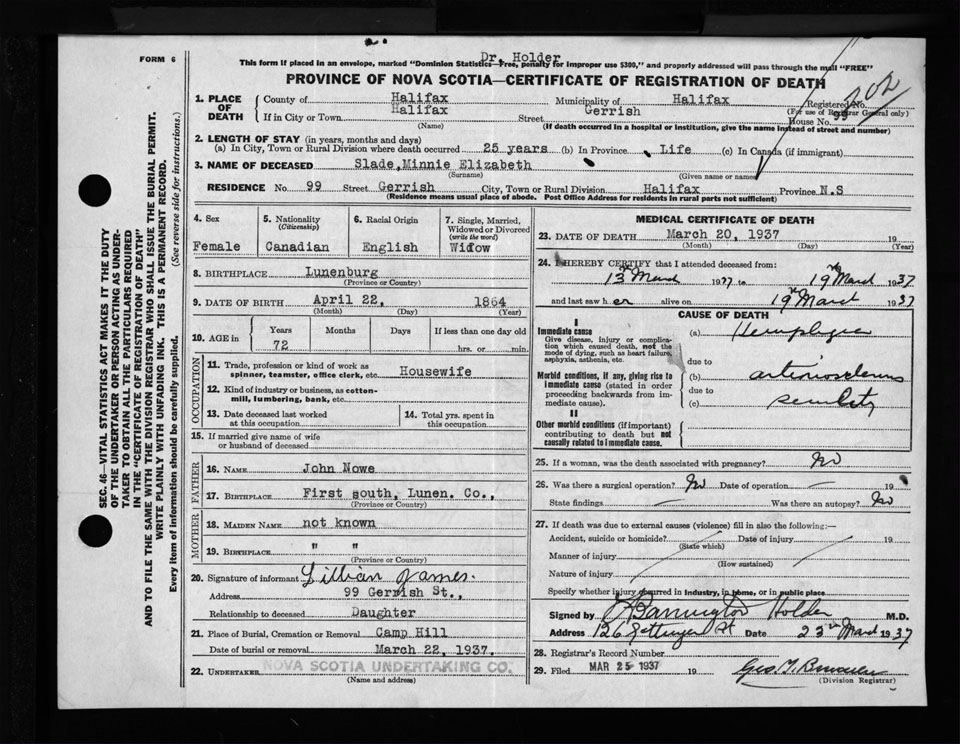 FORM 6
Dr. Holder
This form if placed in an envelope, marked "Dominion Statistics—Free, penalty for improper use $300," and properly addressed will pass through the mail "FREE"
PROVINCE OF NOVA SCOTIA—CERTIFICATE OF REGISTRATION OF DEATH
202
SEC. 46—VITAL STATISTICS ACT MAKES IT THE DUTY
OF THE UNDERTAKER OR PERSON ACTING AS UNDER-
TAKER TO OBTAIN ALL THE PARTICULARS REQUIRED
IN THE "CERTIFICATE OF REGISTRATION OF DEATH"
AND TO FILE THE SAME WITH THE DIVISION REGISTRAR WHO SHALL ISSUE THE BURIAL PERMIT.
WRITE PLAINLY WITH UNFADING INK. THIS IS A PERMANENT RECORD.
Every item of information should be carefully supplied. (See reverse side for instructions.)
1. PLACE OF DEATH
County of Halifax Municipality of Halifax Registered No.
(For use of Registrar General only)
If in City or Town Halifax Street Gerrish House No. 99
(Name) (If death occurred in a hospital or institution, give the name instead of street and number)
2. LENGTH OF STAY (in years, months and days)
(a) In City, Town or Rural Division where death occurred 25 years (b) In Province Life (c) In Canada (if immigrant)
3. NAME OF DECEASED Slade, Minnie Elizabeth
(Surname) (Given name or names)
RESIDENCE No. 99 Street Gerrish City, Town or Rural Division Halifax Province N.S
(Residence means usual place of abode. Post Office Address for residents in rural parts not sufficient)
4. Sex
Female
5. Nationality
(Citizenship)
Canadian
6. Racial Origin
English
7. Single, Married,
Widowed or Divorced
(write the word)
Widow
8. BIRTHPLACE Lunenburg
(Province or Country)
9. DATE OF BIRTH April 22, 1864
(Month) (Day) (Year)
10. AGE in Years Months Days If less than one day old
72 hrs. or min.
OCCUPATION
11. Trade, profession or kind of work as
spinner, teamster, office clerk, etc. Housewife
12. Kind of industry or business, as cotton-
mill, lumbering, bank, etc.
13. Date deceased last worked
at this occupation
14. Total yrs. spent in
this occupation
15. If married give name of wife
or husband of deceased
FATHER
16. NAME John Nowe
17. BIRTHPLACE First south, Lunen. Co.,
(Province or Country)
MOTHER
18. MAIDEN NAME not known
19. BIRTHPLACE " "
(Province or Country)
20. Signature of informant Lillian James.
Address 99 Gerrish St.,
Relationship to deceased Daughter
21. Place of Burial, Cremation or Removal Camp Hill
Date of burial or removal March 22, 1937.
22. UNDERTAKER NOVA SCOTIA UNDERTAKING CO.
(Name and address)
MEDICAL CERTIFICATE OF DEATH
23. DATE OF DEATH March 20, 1937 19
(Month) (Day) (Year)
24. I HEREBY CERTIFY that I attended deceased from:
13th March 1937 to 19th March 1937
and last saw her alive on 19th March 1937
CAUSE OF DEATH
I
Immediate cause
Give disease, injury or complica-
tion which caused death, not the
mode of dying, such as heart failure,
asphyxia, asthenia, etc.
(a) Hemiplegia
due to
Morbid conditions, if any, giving rise to
immediate cause (stated in order
proceeding backwards from im-
mediate cause).
(b) arteriosclerosis
due to
(c) senility
II
Other morbid conditions (if important)
contributing to death but not
causally related to immediate cause.
25. If a woman, was the death associated with pregnancy? No
26. Was there a surgical operation? No Date of operation — 19
State findings — Was there an autopsy? No
27. If death was due to external causes (violence) fill in also the following:—
Accident, suicide or homicide? Date of injury 19
(State which)
Manner of injury
(How sustained)
Nature of injury
Specify whether injury occurred in industry, in home, or in public place
Signed by Barrington Holder M.D.
Address 126 Gottingen St Date 23rd March 1937
28. Registrar's Record Number
29. Filed MAR 25 1937 19
(Division Registrar)